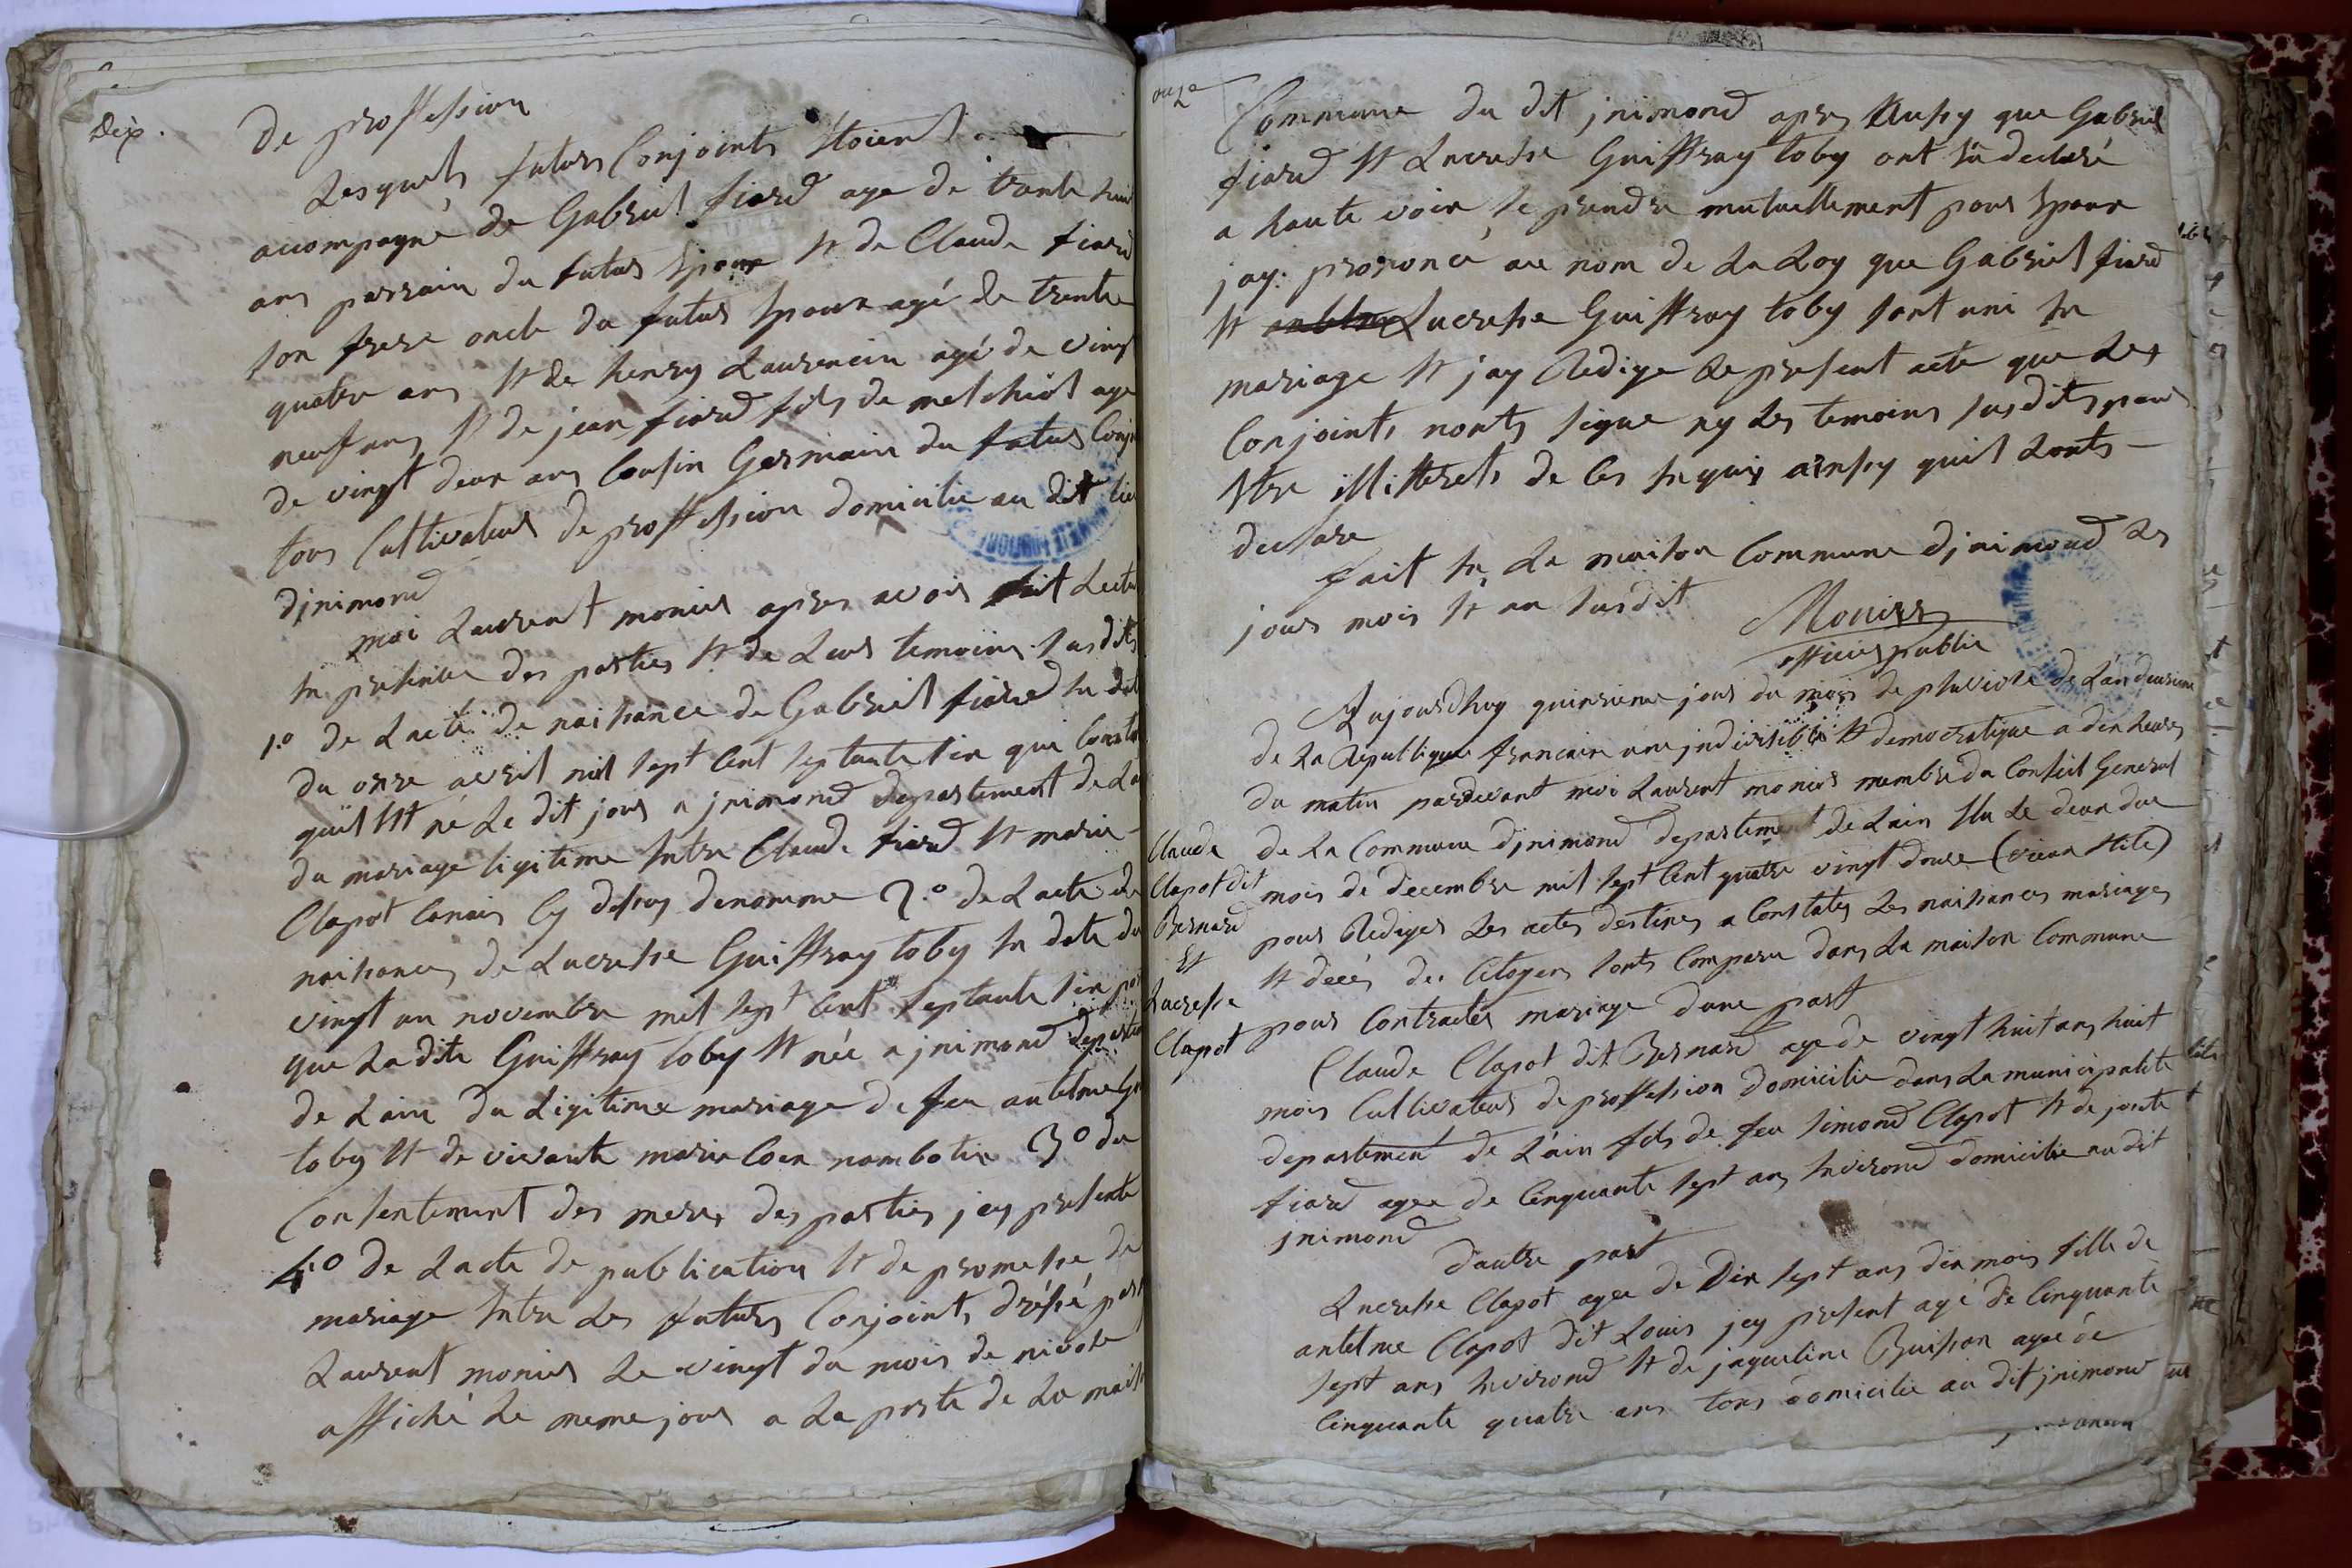 Dix.
De proffession
Lesquels futurs Conjoints Etoient
accompagné de Gabriel fiard age de trante huit
ans parrain du futur Epoux Et de Claude fiard
son frere oncle du futur Epoux agé de trente
quatre ans Et de henry Laurencin agé de vingt
neuf ans Et de jean fiard fils de melchiol age
de vingt deux ans Cousin Germain du futur Conj
tous Cultivateurs de proffession domicilie au dit lieu
djnimond
moi Laurent monier apres avoir fait Lectu
En presence des parties Et de Leur temoins susdits
1.o de Lacte de naissance de Gabriel fiard En dat
du onze avril mil sept Cent septante six qui Consta
quil Est né Le dit jour a jnimond departement de La
du mariage ligitime Entre Claude fiard Et marie
Clapot Conais Cy dessus denomme 2.o de Lacte de
naissances de Lucresse Guiffray toby En date du
vingt un novembre mil sept Cent septante six por
que La dite Guiffray toby Et née a jnimond departem
de Lain du Ligitime mariage de feu antelme Gu
toby Et de vivante marie Coen nambotin 3o du
Consentement des meres des parties jcy presente
4.o de Lacte de publication Et de promesse de
mariage Entre Les futurs Conjoints dréssé par
Laurent monier Le vingt du mois de nivose
affiché Le meme jour a La porte de La mais
onze
Commune du dit jnimond apres Aussy que Gabriel
fiard Et Lucresse Guiffray toby ont Eü declaré
a haute voix se prendre mutuellement pour Epoux
jay prononcé au nom de La Loy que Gabriel fiard
Et Lucresse Guiffray toby sont uni En
mariage Et jay Redige Le present acte que Les
Conjoints nonts signe ny Les temoins susdits pour
Etre illitterets de Ces Enquis ainsy quil Lonts
declare
fait En La maison Commune djnimond Les
jour mois Et an susdit
Monier
officier public
Aujourdhuy quinzieme jour du mois de pluviose de L'an deuxieme
de La Republique francaise une jndivisible Et democratique a dix heures
du matin pardevant moi Laurent monier membre du Conseil General
de La Commune djnimond departement de Lain Elu Le deux du
mois de decembre mil sept Cent quatre vingt douze (vieux Stile)
pour Rediger Les actes destines a Constater Les naissances mariages
Et decés des Citoyens sonts Comparu dans La maison Commune
pour Contracter mariage dune part
Claude
Clapot dit
Bernard
Et
Lucresse
Clapot
Claude Clapot dit Bernard age de vingt huit ans huit
mois Cultivateur de proffession domicilie dans La municipalite
departement de L'ain fils de feu simond Clapot Et de josete
fiard agee de Cinquante sept ans Environd domicilie au dit
jnimond
dautre part
Lucresse Clapot agee de Dix sept ans dix mois fille de
antelme Clapot dit Louis jcy present agé de Cinquante
sept ans Environd Et de jaqueline Buisson agee de
Cinquante quatre ans tous domicilie au dit jnimond